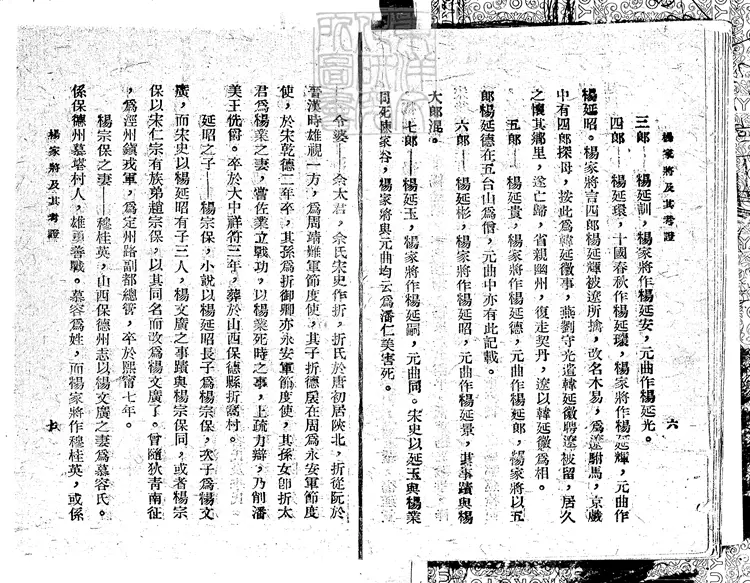 楊家將及其考證
六
三郎——楊延訓，楊家將作楊延安，元曲作楊延光。
四郎——楊延環，十國春秋作楊延瓌，楊家將作楊延輝，元曲作
楊延昭。楊家將言四郎楊延輝被遼所擒，改名木易，爲遼駙馬，京戲
中有四郎探母，按此爲韓延徽事，燕劉守光遣韓延徽聘遼被留，居久
之懷其鄉里，遂亡歸，省親幽州，復走契丹，遼以韓延徽爲相。
五郎——楊延貴，楊家將作楊延德，元曲作楊延郎，楊家將以五
郎楊延德在五台山爲僧，元曲中亦有此記載。
六郎——楊延彬，楊家將作楊延昭，元曲作楊延景，其事蹟與楊
大郎混。
七郎——楊延玉，楊家將作楊延嗣，元曲同。宋史以延玉與楊業
同死陳家谷，楊家將與元曲均云爲潘仁美害死。
令婆——佘太君，佘氏宋史作折，折氏於唐初居陝北，折從阮於
晉漢時雄視一方，爲周靖難軍節度使，其子折德扆在周爲永安軍節度
使，於宋乾德二年卒，其孫爲折御卿亦永安軍節度使，其孫女卽折太
君爲楊業之妻，嘗佐業立戰功，以楊業死時之事，上疏力辯，乃削潘
美王侁爵。卒於大中祥符三年，葬於山西保德縣折窩村。
延昭之子——楊宗保，小說以楊延昭長子爲楊宗保，次子爲楊文
廣，而宋史以楊延昭有子三人，楊文廣之事蹟與楊宗保同，或者楊宗
保以宋仁宗有族弟趙宗保，以其同名而改爲楊文廣了。曾隨狄青南征
，爲涇州鎮戎軍，爲定州路副都總管，卒於熙甯七年。
楊宗保之妻——穆桂英，山西保德州志以楊文廣之妻爲慕容氏。
係保德州慕塔村人，雄勇善戰。慕容爲姓，而楊家將作穆桂英，或係
楊家將及其考證
七